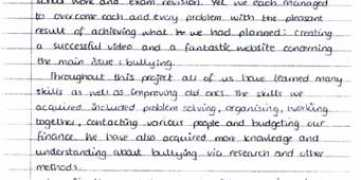 school work and exam revision. Yet we each managed
to overcome each and every problem with the pleasant
result of achieving what he we had planned: creating
a successful video and a fantastic website concerning
the main issue: bullying.
Throughout this project all of us have learned many
skills as well as improving old ones. The skills we
acquired included problem solving, organising, working
together, contacting various people and budgeting our
finance. We have also acquired more knowledge and
understanding about bullying via research and other
methods.